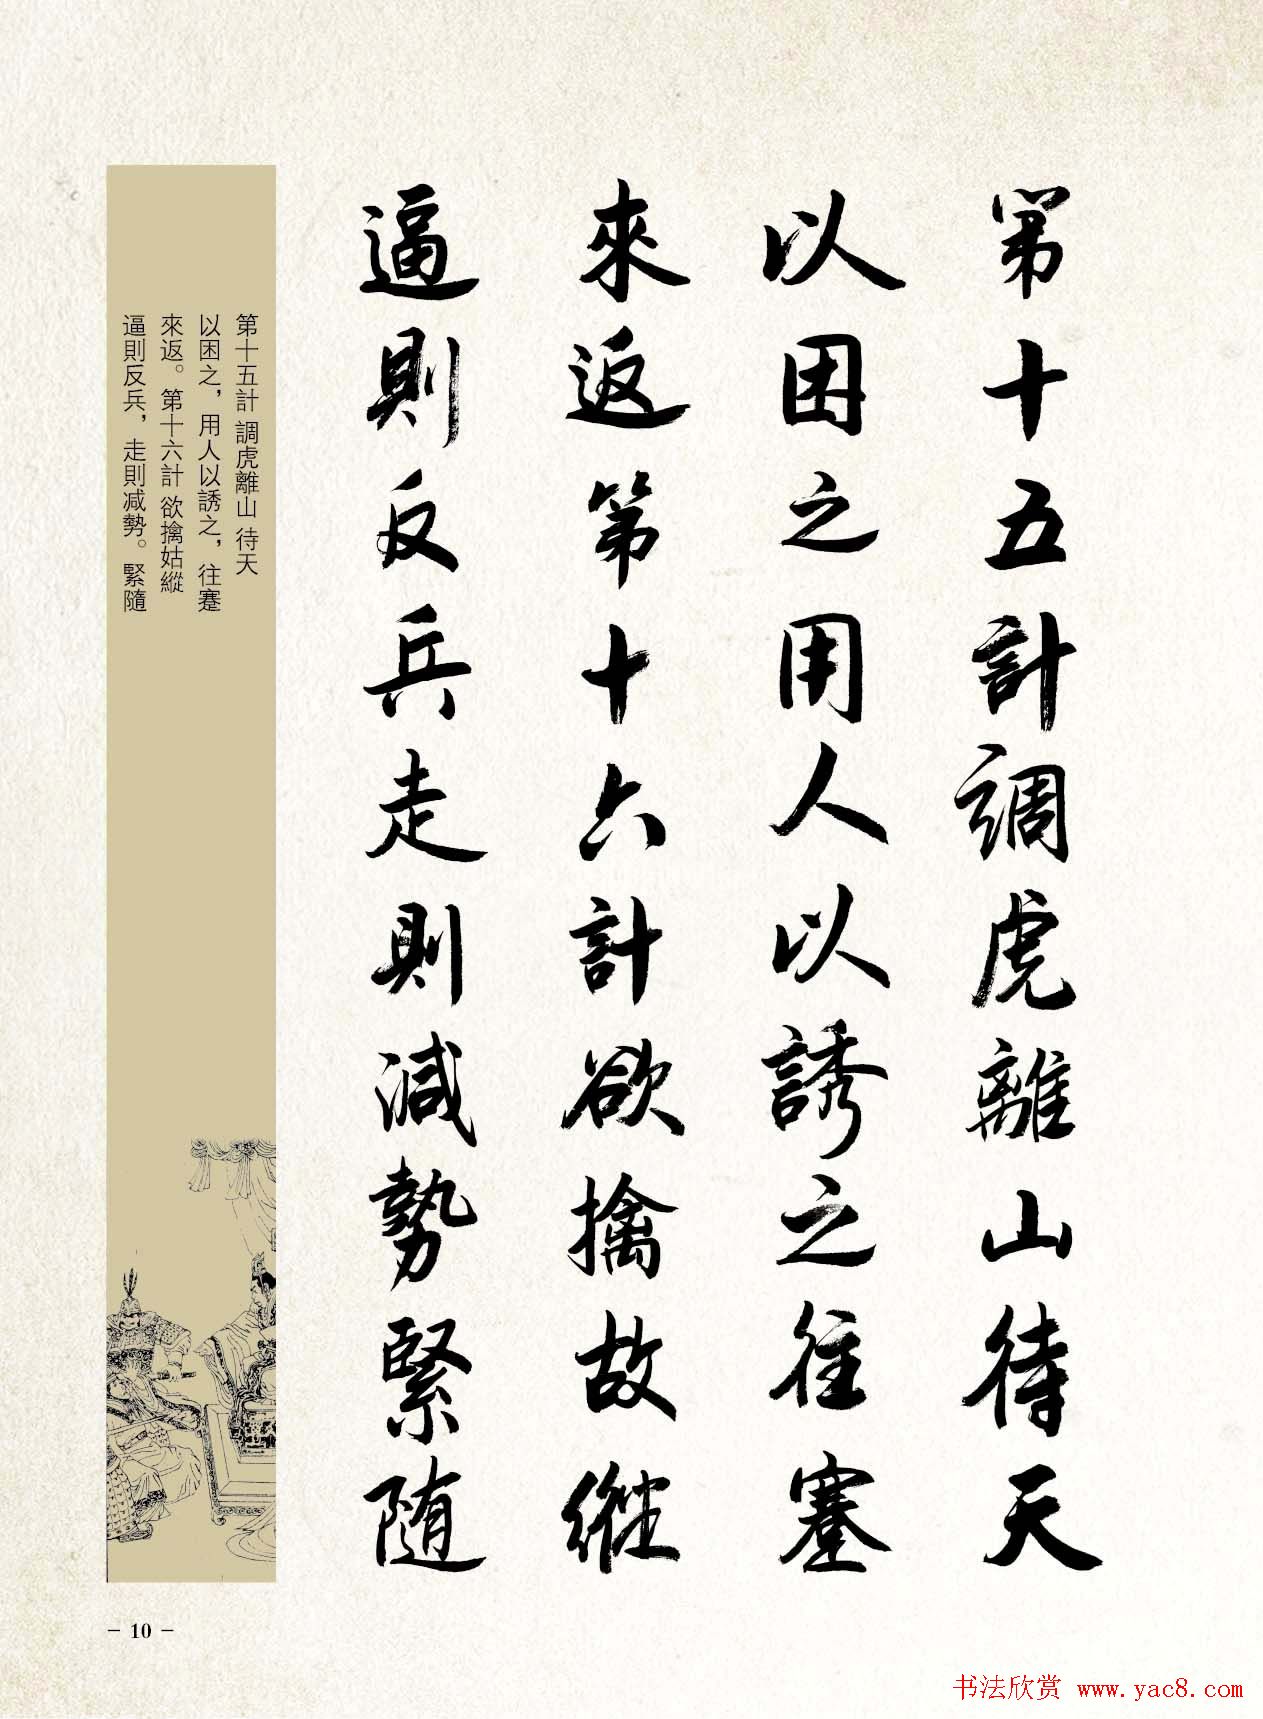 第十五計調虎離山待天
以困之用人以誘之往蹇
來返第十六計欲擒故縱
逼則反兵走則減勢緊隨
第十五計 調虎離山 待天
以困之，用人以誘之，往蹇
來返。第十六計 欲擒姑縱
逼則反兵，走則減勢。緊隨
- 10 -
书法欣赏 www.yac8.com